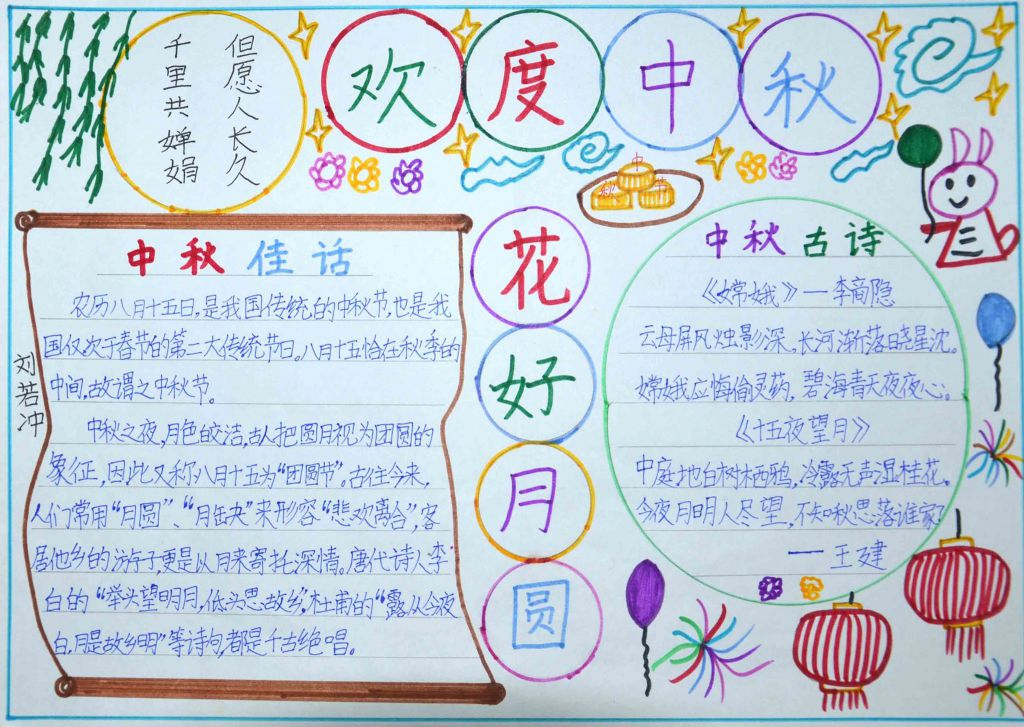 欢度中秋
但愿人长久
千里共婵娟
中秋佳话
农历八月十五日,是我国传统的中秋节,也是我
国仅次于春节的第二大传统节日。八月十五恰在秋季的
中间,故谓之中秋节。
中秋之夜,月色皎洁,古人把圆月视为团圆的
象征,因此又称八月十五为“团圆节”。古往今来,
人们常用“月圆”、“月缺”来形容“悲欢离合”,客
居他乡的游子更是以月来寄托深情。唐代诗人李
白的“举头望明月,低头思故乡”。杜甫的“露从今夜
白,月是故乡明”等诗句,都是千古绝唱。
刘若冲
花好月圆
中秋古诗
《嫦娥》—李商隐
云母屏风烛影深,长河渐落晓星沈。
嫦娥应悔偷灵药,碧海青天夜夜心。
《十五夜望月》
中庭地白树栖鸦,冷露无声湿桂花。
今夜月明人尽望,不知秋思落谁家?
——王建
中
秋
节
三